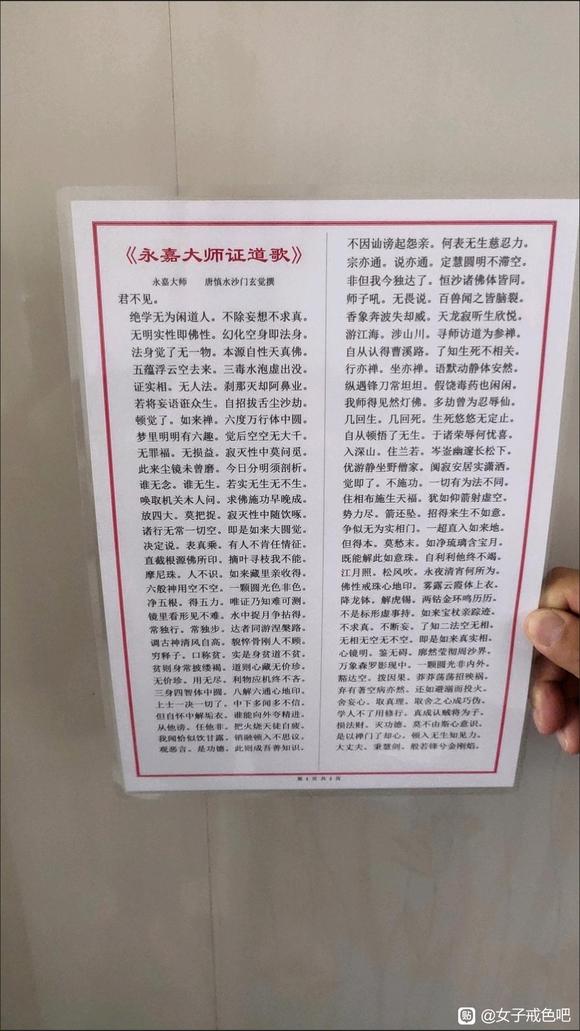 《永嘉大师证道歌》
永嘉大师 唐慎水沙门玄觉撰
君不见。
绝学无为闲道人。不除妄想不求真。
无明实性即佛性。幻化空身即法身。
法身觉了无一物。本源自性天真佛。
五蕴浮云空去来。三毒水泡虚出没。
证实相。无人法。刹那灭却阿鼻业。
若将妄语诳众生。自招拔舌尘沙劫。
顿觉了。如来禅。六度万行体中圆。
梦里明明有六趣。觉后空空无大千。
无罪福。无损益。寂灭性中莫问觅。
此来尘镜未曾磨。今日分明须剖析。
谁无念。谁无生。若实无生无不生。
唤取机关木人问。求佛施功早晚成。
放四大。莫把捉。寂灭性中随饮啄。
诸行无常一切空。即是如来大圆觉。
决定说。表真乘。有人不肯任情征。
直截根源佛所印。摘叶寻枝我不能。
摩尼珠。人不识。如来藏里亲收得。
六般神用空不空。一颗圆光色非色。
净五根。得五力。唯证乃知难可测。
镜里看形见不难。水中捉月争拈得。
常独行。常独步。达者同游涅槃路。
调古神清风自高。貌悴骨刚人不顾。
穷释子。口称贫。实是身贫道不贫。
贫则身常披缕褐。道则心藏无价珍。
无价珍。用无尽。利物应机终不吝。
三身四智体中圆。八解六通心地印。
上士一决一切了。中下多闻多不信。
但自怀中解垢衣。谁能向外夸精进。
从他谤。任他非。把火烧天徒自疲。
我闻恰似饮甘露。销融顿入不思议。
观恶言。是功德。此则成吾善知识。
不因讪谤起怨亲。何表无生慈忍力。
宗亦通。说亦通。定慧圆明不滞空。
非但我今独达了。恒沙诸佛体皆同。
师子吼。无畏说。百兽闻之皆脑裂。
香象奔波失却威。天龙寂听生欣悦。
游江海。涉山川。寻师访道为参禅。
自从认得曹溪路。了知生死不相关。
行亦禅。坐亦禅。语默动静体安然。
纵遇锋刀常坦坦。假饶毒药也闲闲。
我师得见然灯佛。多劫曾为忍辱仙。
几回生。几回死。生死悠悠无定止。
自从顿悟了无生。于诸荣辱何忧喜。
入深山。住兰若。岑崟幽邃长松下。
优游静坐野僧家。阒寂安居实潇洒。
觉即了。不施功。一切有为法不同。
住相布施生天福。犹如仰箭射虚空。
势力尽。箭还坠。招得来生不如意。
争似无为实相门。一超直入如来地。
但得本。莫愁末。如净琉璃含宝月。
既能解此如意珠。自利利他终不竭。
江月照。松风吹。永夜清宵何所为。
佛性戒珠心地印。雾露云霞体上衣。
降龙钵。解虎锡。两钴金环鸣历历。
不是标形虚事持。如来宝杖亲踪迹。
不求真。不断妄。了知二法空无相。
无相无空无不空。即是如来真实相。
心镜明。鉴无碍。廓然莹彻周沙界。
万象森罗影现中。一颗圆光非内外。
豁达空。拨因果。莽莽荡荡招殃祸。
弃有著空病亦然。还如避溺而投火。
舍妄心。取真理。取舍之心成巧伪。
学人不了用修行。真成认贼将为子。
损法财。灭功德。莫不由斯心意识。
是以禅门了却心。顿入无生知见力。
大丈夫。秉慧剑。般若锋兮金刚焰。
第 1 页 共 2 页
贴 @女子戒色吧